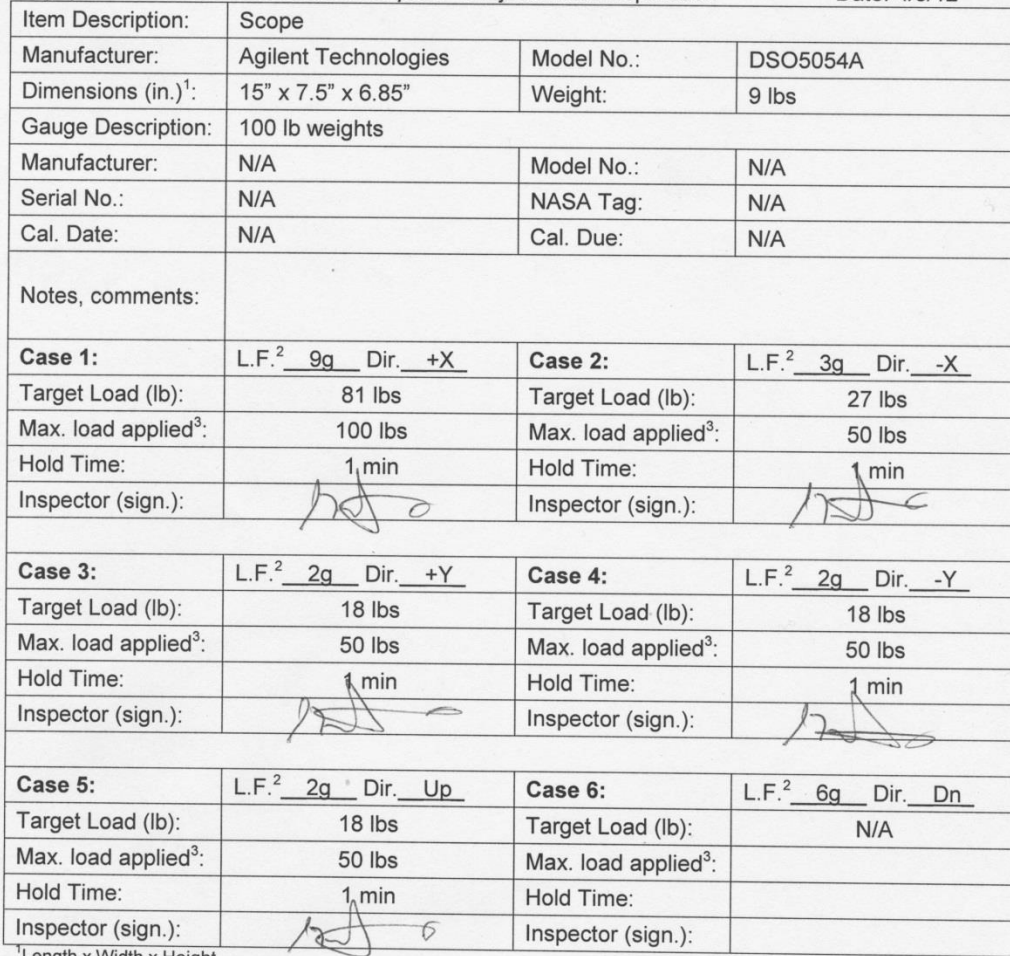 Item Description: Scope
Manufacturer: Agilent Technologies Model No.: DSO5054A
Dimensions (in.)¹: 15” x 7.5” x 6.85” Weight: 9 lbs
Gauge Description: 100 lb weights
Manufacturer: N/A Model No.: N/A
Serial No.: N/A NASA Tag: N/A
Cal. Date: N/A Cal. Due: N/A
Notes, comments:
Case 1: L.F.² 9g Dir. +X Case 2: L.F.² 3g Dir. -X
Target Load (lb): 81 lbs Target Load (lb): 27 lbs
Max. load applied³: 100 lbs Max. load applied³: 50 lbs
Hold Time: 1 min Hold Time: 1 min
Inspector (sign.): Inspector (sign.):
Case 3: L.F.² 2g Dir. +Y Case 4: L.F.² 2g Dir. -Y
Target Load (lb): 18 lbs Target Load (lb): 18 lbs
Max. load applied³: 50 lbs Max. load applied³: 50 lbs
Hold Time: 1 min Hold Time: 1 min
Inspector (sign.): Inspector (sign.):
Case 5: L.F.² 2g Dir. Up Case 6: L.F.² 6g Dir. Dn
Target Load (lb): 18 lbs Target Load (lb): N/A
Max. load applied³: 50 lbs Max. load applied³:
Hold Time: 1 min Hold Time:
Inspector (sign.): Inspector (sign.):
¹Length x Width x Height